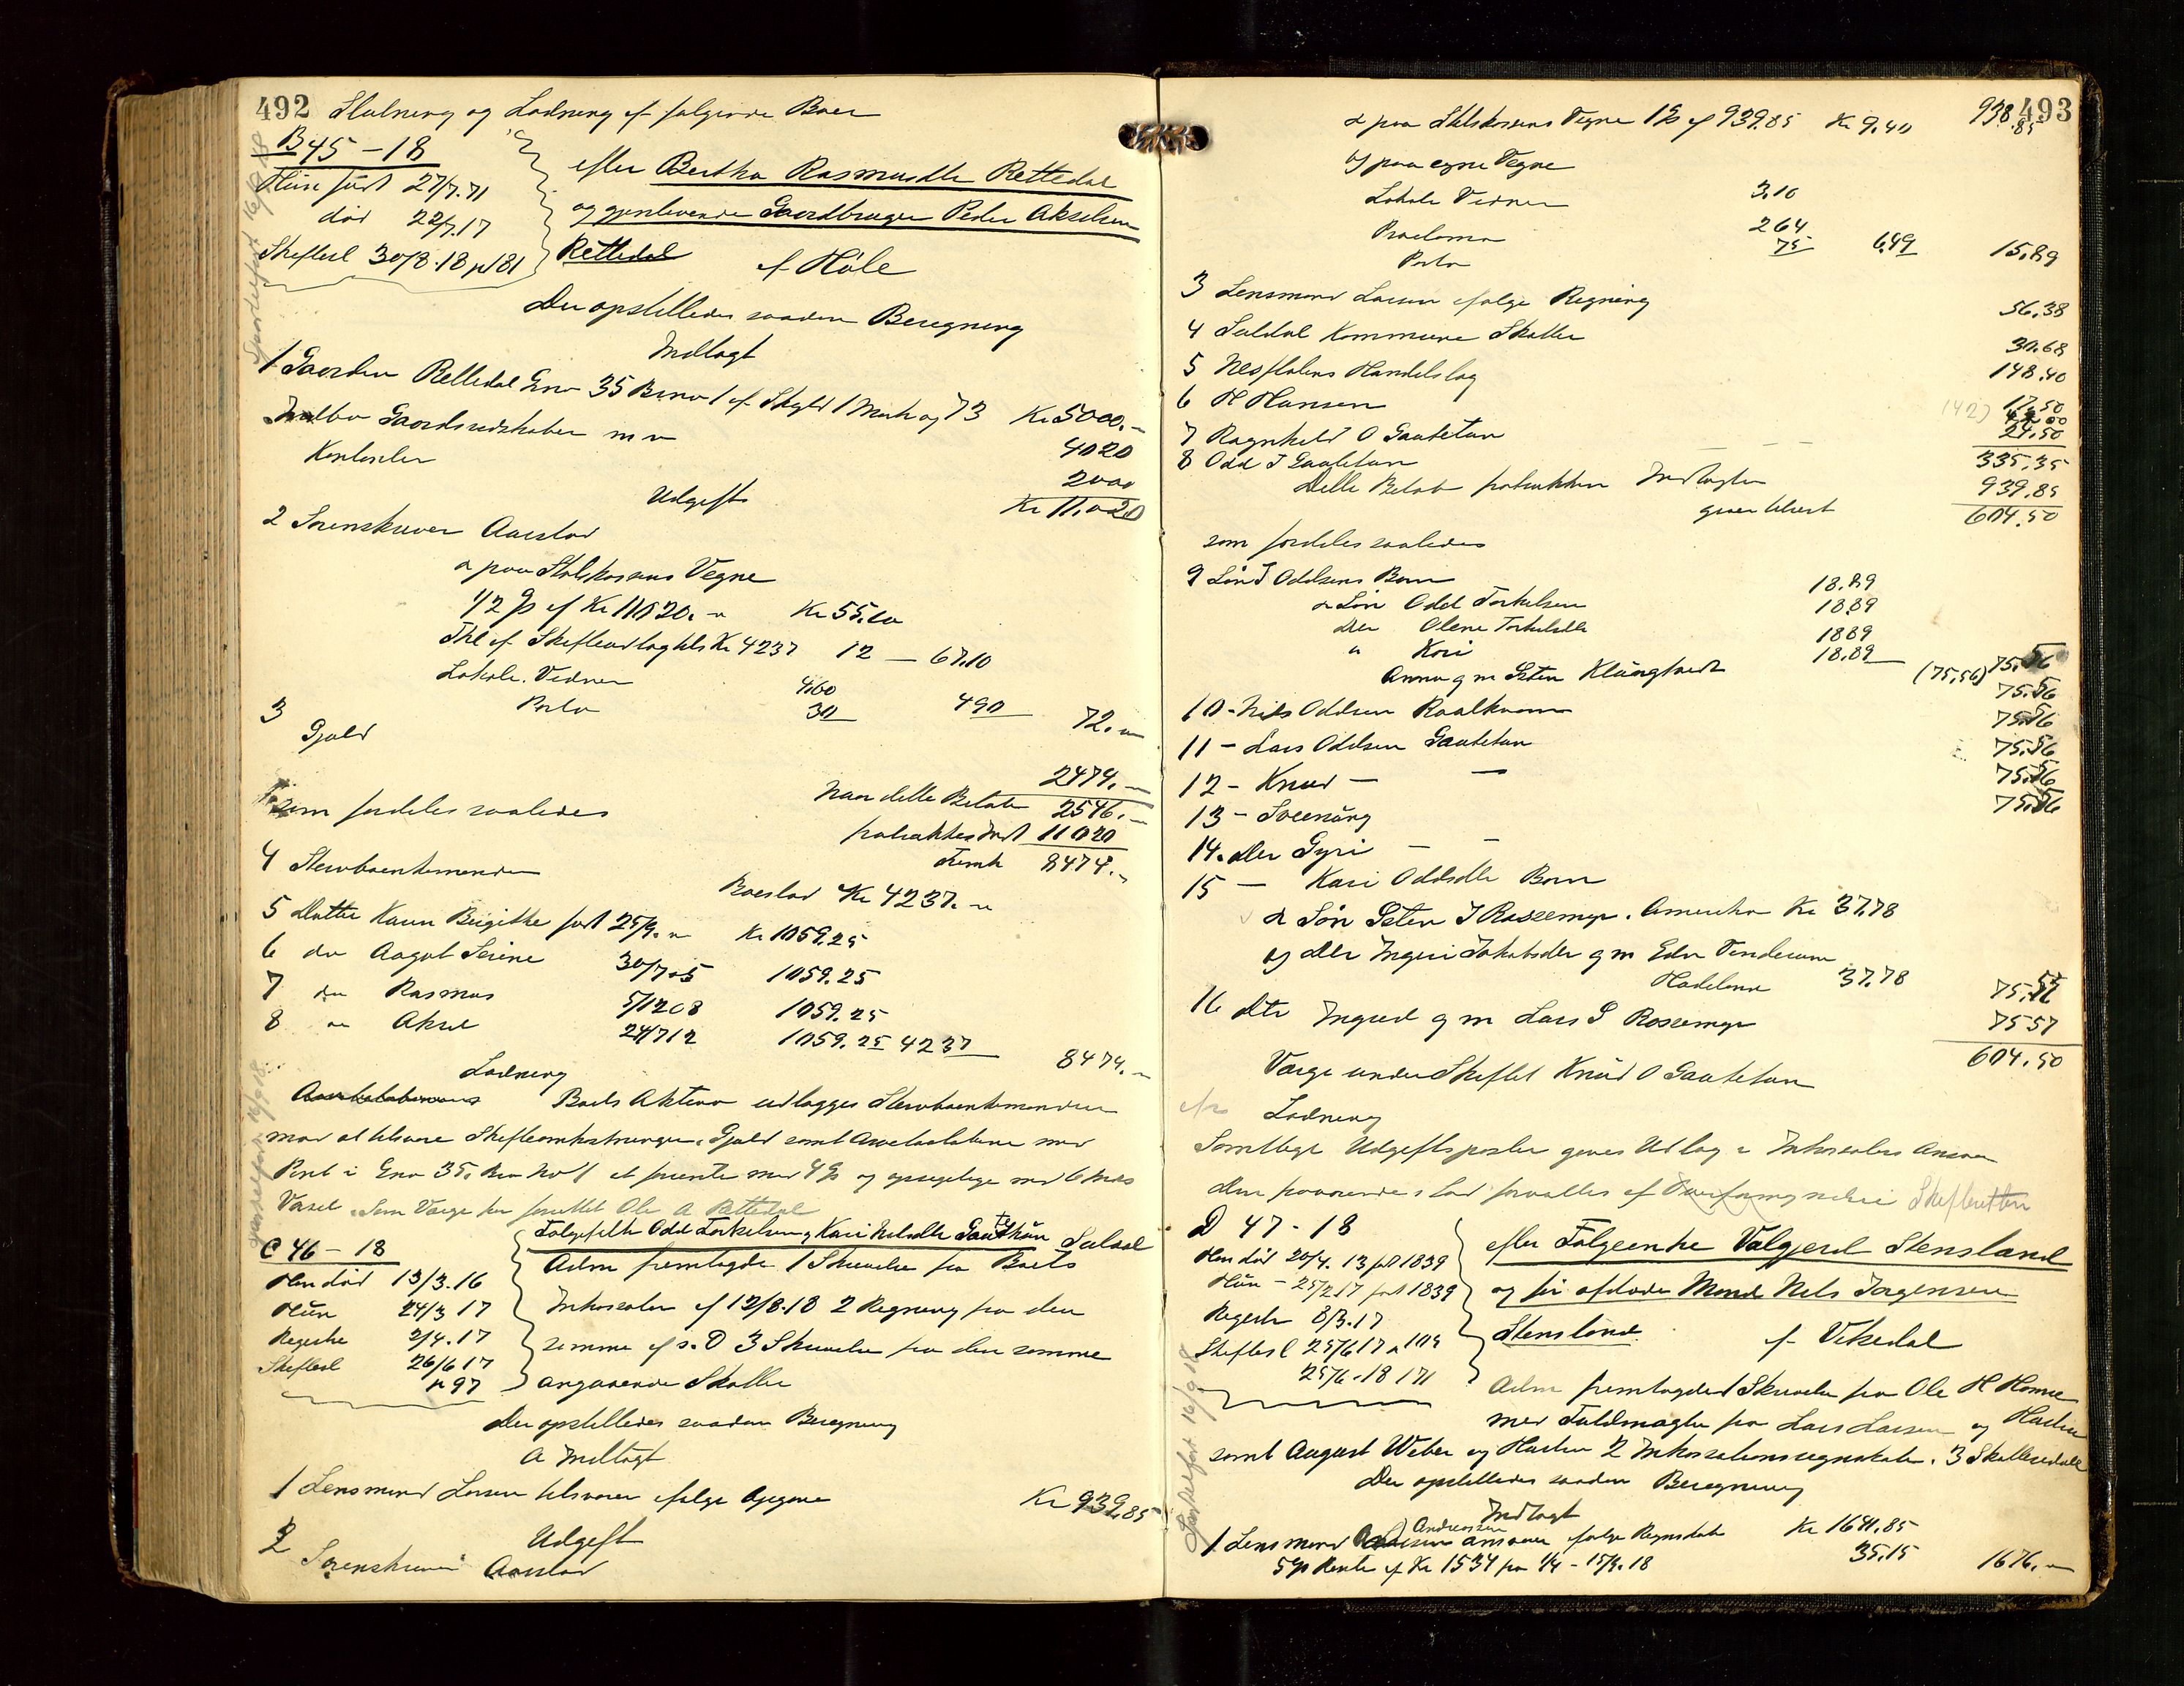 492 Slutning og Lodning af følgende Boer
B 45 - 18
Hun født 27/7.71
død 22/7.17
Skiftesl 30/8.18 p 181
efter Bertha Rasmusdtr Rettedal
og gjenlevende Gaardbruger Peder Akselsen
Rettedal af Høle
Der opstilledes saadan Beregning
Indtægt
1 Gaarden Rettedal Gno 35 Bno 1 af Skyld 1 Mark og 73 Kr 5000.-
Indbo Gaardsredskaber m v 4020
Kontanter 2000
Kr 11.020
Udgift
2 Sorenskriver Aarstad
a paa Statskassens Vegne
1/2 % af Kr 11020.- Kr 55.10
Thl af Skifteudlagtils Kr 4237 12 - 67.10
Lokale. Vidner 4.60
Porto 30 4 90 72.-
3 Gjæld 2474.-
Naar dette Beløb 2546.-
fratrækkes Indt 11020
Fremk 8474.-
som fordeles saaledes
4 Stervboenkemanden Boeslod Kr 4237.-
5 Datter Karen Birgithe født 25/9. Kr 1059.25
6 do Aagot Serine 30/7 05 1059.25
7 Rasmus 5/12 08 1059.25
8 Aksel 24/7 12 1059.25 4237 8474.-
Lodning
Boets Aktiva udlægges Stervboenkemanden
mod at tilsvare Skifteomkostninger. Gjæld samt Arvelodderne med
Pant i Gno 35. Bno 1 at forrente med 4 % og opsigelige med 6 Mdrs
Varsel. Som Værge har forrettet Ole A Rettedal
C 46 - 18
Han død 13/3.16
Hun 24/3 17
Registre 2/4.17
Skiftesl 26/6 17
p 97
Følgefolk Odd Torkelsen og Kari Nilsdtr Gautetun Suldal
Adm fremlagde 1 Skrivelse fra Boets
Inkassator af 12/8.18 2 Regning fra den
samme af s. D 3 Skrivelse fra den samme
angaaende Skatter
Der opstilledes saadan Beregning
A Indtægt
1 Lensmand Larsen tilsvarer ifølge Opgjøre Kr 939.85
Udgift
2 Sorenskriver Aarstad
493
a paa Statskassens Vegne 1 % af 939.85 Kr 9.40 938.85
og paa egne Vegne
Lokale Vidner 3.10
Proclama 2 64
Porto 75 6.49 15.89
3 Lensmand Larsen ifølge Regning 56.38
4 Suldal Kommune Skatter 30.68
5 Nesflatens Handelslag 148.40
6 H Hansen 17.50
7 Ragnhild O Gautetun
8 Odd T Gautetun 24.50
335.35
Dette Beløb fratrukken Indtægten 939.85
giver tilrest 604.50
som fordeles saaledes
9 Søn T Oddsens Børn
a Søn Odd Torkelsen 18.89
Dtr Olene Torkelsdtr 18.89
" Kari 18.89
Anna g m Sten Klungtveit 18.89 (75.56) 75.56
10 - Nils Oddsen Roalkvam 75.56
11 - Lars Oddsen Gautetun 75.56
12 - Knud - - 75.56
13 - Sveinung 75.56
14. Dtr Gyri - - 75.56
15 - Kari Oddsdtr Børn
a Søn Sten I Rossemyr. Amerika Kr 37.78
og Dtr Ingeri Jakobsdtr g m Edv Tenderum
Hadeland 37.78 75.56
16 Dtr Ingrid g m Lars S Rossemyr 75 57
604.50
Værge under Skiftet Knud O Gautetun
Lodning
Samtlige Udgiftsposter gives Udlæg i Inkassators Ansvar
Skifteretten
D 47 - 18
Han død 20/4. 13 født 1839
Hun - 25/2 17 født 1839
Registr 8/3.17
Skiftesl 25/6 17 p 104
25/6 - 18 171
efter Følgeenke Valgjerd Stensland
og før afdøde Mand Nels Jørgensen
Stensland af Vikedal
Adm fremlagde 1 Skrivelse fra Ole H Homme
med Fuldmagter fra Lars Larsen og Hustru
samt August Weber og Hustru 2 Inkassationsregnskab. 3 Skatteseddel
Der opstilledes saadan Beregning
Indtægt
1 Lensmand Andreassen ansvarer ifølge Regnskab Kr 1641.85
5 % Rente af Kr 1534 fra 1/4 - 15/9.18 35.15 1676.-